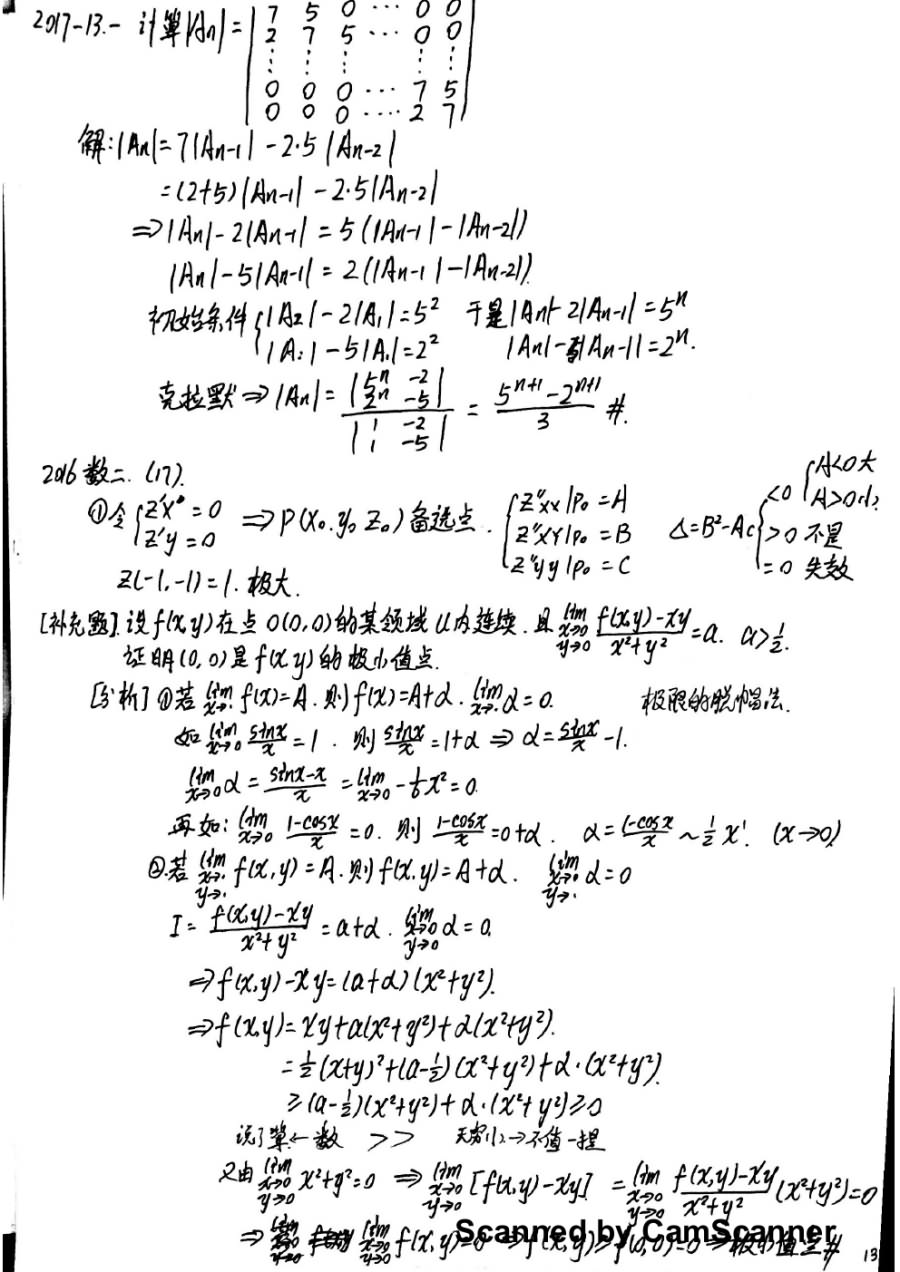 2017-13.- 计算|An|= | 7 5 0 ⋯ 0 0 |
| 2 7 5 ⋯ 0 0 |
| ⋮ ⋮ ⋮ ⋮ ⋮ |
| 0 0 0 ⋯ 7 5 |
| 0 0 0 ⋯ 2 7 |
解:|An|=7|An-1| - 2·5|An-2|
=(2+5)|An-1| - 2·5|An-2|
⇒|An|-2|An-1|=5(|An-1|-|An-2|)
|An|-5|An-1|=2(|An-1|-|An-2|)
初始条件{|A2|-2|A1|=5² 于是|An|-2|An-1|=5ⁿ
|A2|-5|A1|=2² |An|-5|An-1|=2ⁿ.
克拉默⇒|An|= |5ⁿ -2; 2ⁿ -5| / |1 -2; 1 -5| = (5ⁿ⁺¹-2ⁿ⁺¹)/3 #.
2016数二.(17).
①令{Z'x=0 Z'y=0 ⇒P(x0,y0,z0)备选点. {Z''xx|P0=A Z''xy|P0=B Z''yy|P0=C Δ=B²-AC{<0{A<0大 A>0小 >0 不是 =0 失效
Z(-1,-1)=1.极大.
[补充题].设f(x,y)在点O(0,0)的某领域U内连续.且lim x→0 y→0 (f(x,y)-xy)/(x²+y²)=a. a>½.
证明(0,0)是f(x,y)的极小值点.
[分析]①若lim x→· f(x)=A.则f(x)=A+α. lim x→· α=0. 极限的脱帽法.
如lim x→0 sinx/x=1. 则sinx/x=1+α⇒α=sinx/x-1.
lim x→0 α=(sinx-x)/x=lim x→0 -1/6x²=0.
再如:lim x→0 (1-cosx)/x=0. 则(1-cosx)/x=0+α. α=(1-cosx)/x~½x¹.(x→0)
②.若lim x→· y→· f(x,y)=A.则f(x,y)=A+α. lim x→· y→· α=0
I=(f(x,y)-xy)/(x²+y²)=a+α. lim x→0 y→0 α=0.
⇒f(x,y)-xy=(a+α)(x²+y²).
⇒f(x,y)=xy+a(x²+y²)+α(x²+y²).
=½(x+y)²+(a-½)(x²+y²)+α·(x²+y²).
≥(a-½)(x²+y²)+α·(x²+y²)≥0
说了算←数 >> 无穷小→不值一提
又由lim x→0 y→0 x²+y²=0 ⇒lim x→0 y→0 [f(x,y)-xy]=lim x→0 y→0 (f(x,y)-xy)/(x²+y²)(x²+y²)=0
⇒ lim x→0 y→0 f(x,y)=0 ⇒f(x,y)≥f(0,0)=0⇒极小值点#
Scanned by CamScanner
13